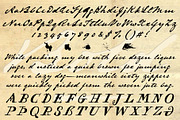 AaBbCcDdEeFfGgHhIiJjKkLlMm
NnOoPpQqRrSsTtUuVvWwXxYyZz
1234567890
While packing my box with five dozen liquor
jugs, I noticed a quick brown fox jumping
over a lazy dog—meanwhile sixty zippers
were quickly picked from the woven jute bag.
ABCDEFGHIJKLMN
OPQRSTUVWXYZ